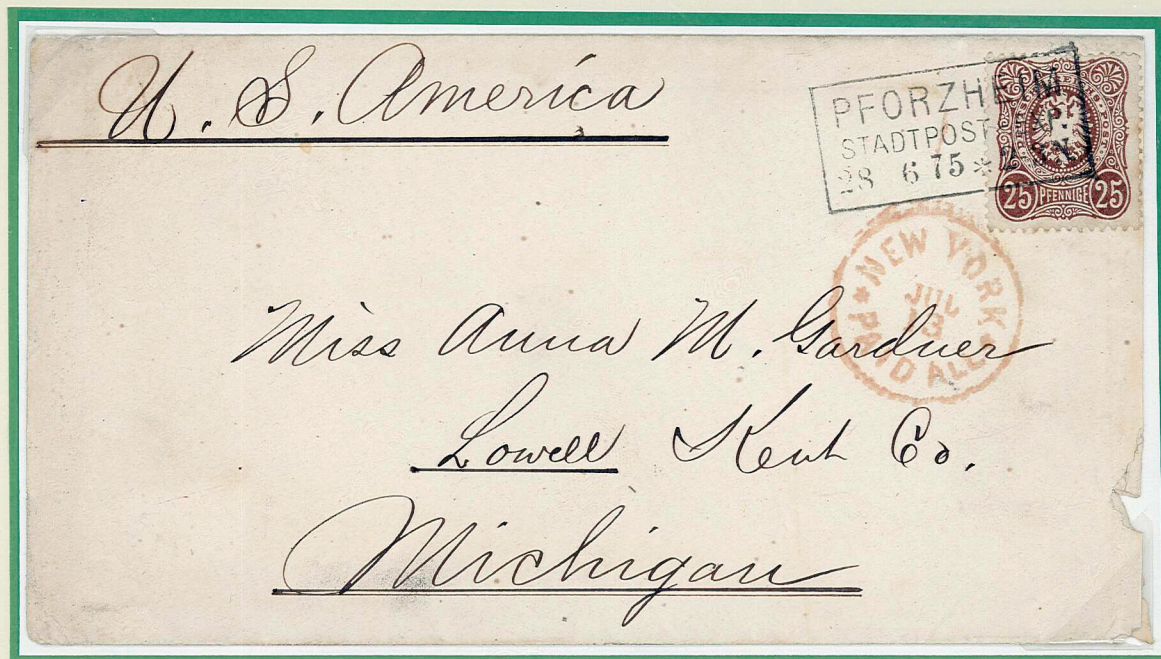 U. S. America
PFORZHEIM
STADTPOST
28 6 75 *
25 PFENNIGE 25
* NEW YORK *
JUL
13
PAID ALL
Miss Anna M. Gardner
Lowell Kent Co.
Michigan